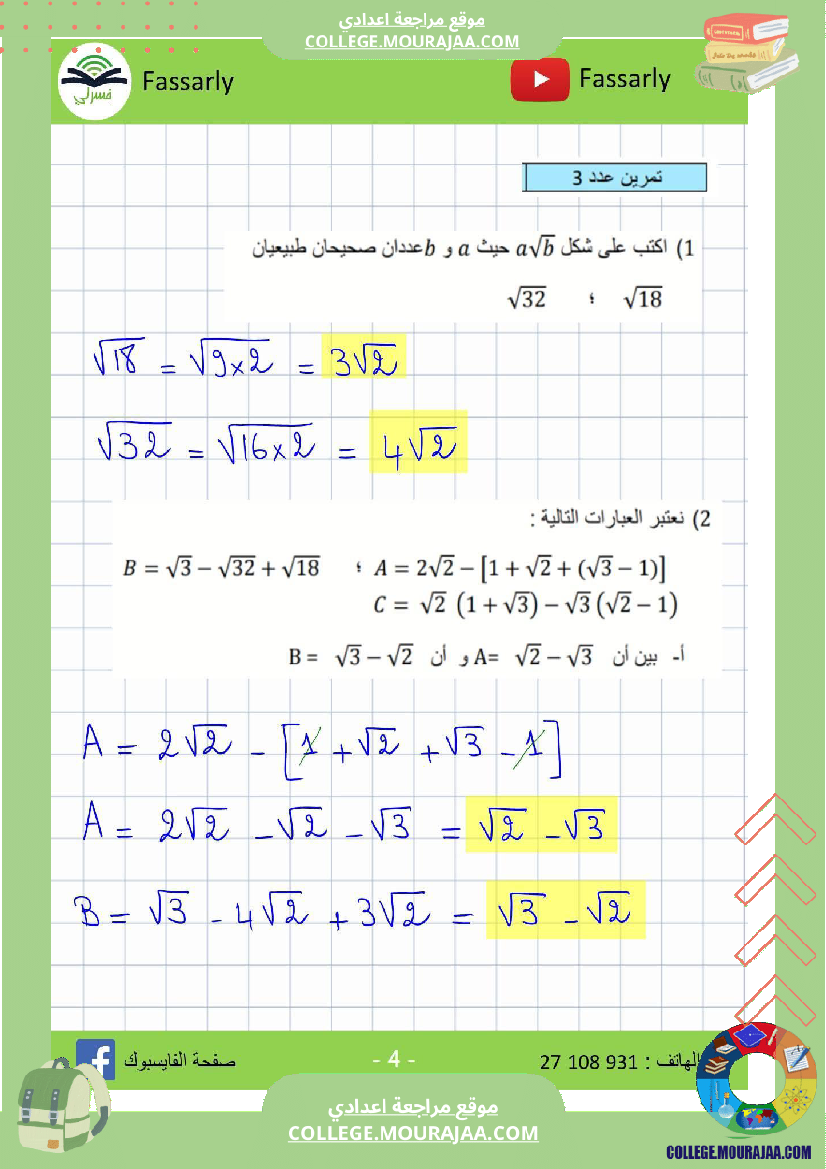 موقع مراجعة اعدادي
COLLEGE.MOURAJAA.COM
فسرلي
Fassarly
Fassarly
تمرين عدد 3
1) اكتب على شكل a√b حيث a و b عددان صحيحان طبيعيان
√18 ؛ √32
√18 = √9×2 = 3√2
√32 = √16×2 = 4√2
2) نعتبر العبارات التالية :
A = 2√2 − [1 + √2 + (√3 − 1)] ؛ B = √3 − √32 + √18
C = √2 (1 + √3) − √3 (√2 − 1)
أ- بين أن A= √2 − √3 و أن B = √3 − √2
A = 2√2 - [1 + √2 + √3 - 1]
A = 2√2 - √2 - √3 = √2 - √3
B = √3 - 4√2 + 3√2 = √3 - √2
صفحة الفايسبوك
- 4 -
الهاتف : 27 108 931
موقع مراجعة اعدادي
COLLEGE.MOURAJAA.COM
COLLEGE.MOURAJAA.COM